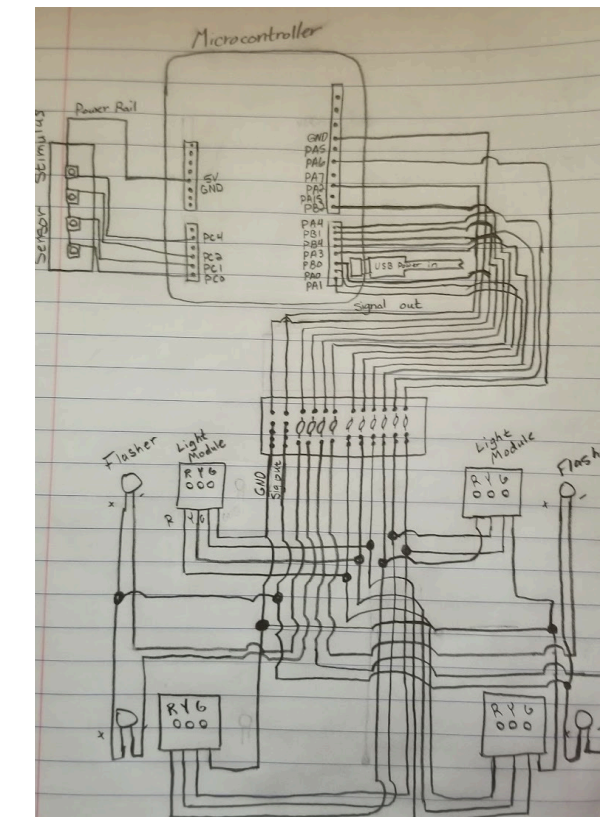 Microcontroller
Power Rail
Sensor Stimulus
5V
GND
PC4
PC2
PC1
PC0
GND
PA5
PA6
PA7
PA2
PA15
PB2
PA4
PB1
PB4
PA3
PB0
PA0
PA1
USB Power in
Signal out
Flasher
Light
Module
R Y G
R Y G
GND
Sig out
Light
Module
R Y G
Flash
+ -
+ -
R Y G
+
R Y G
+ -